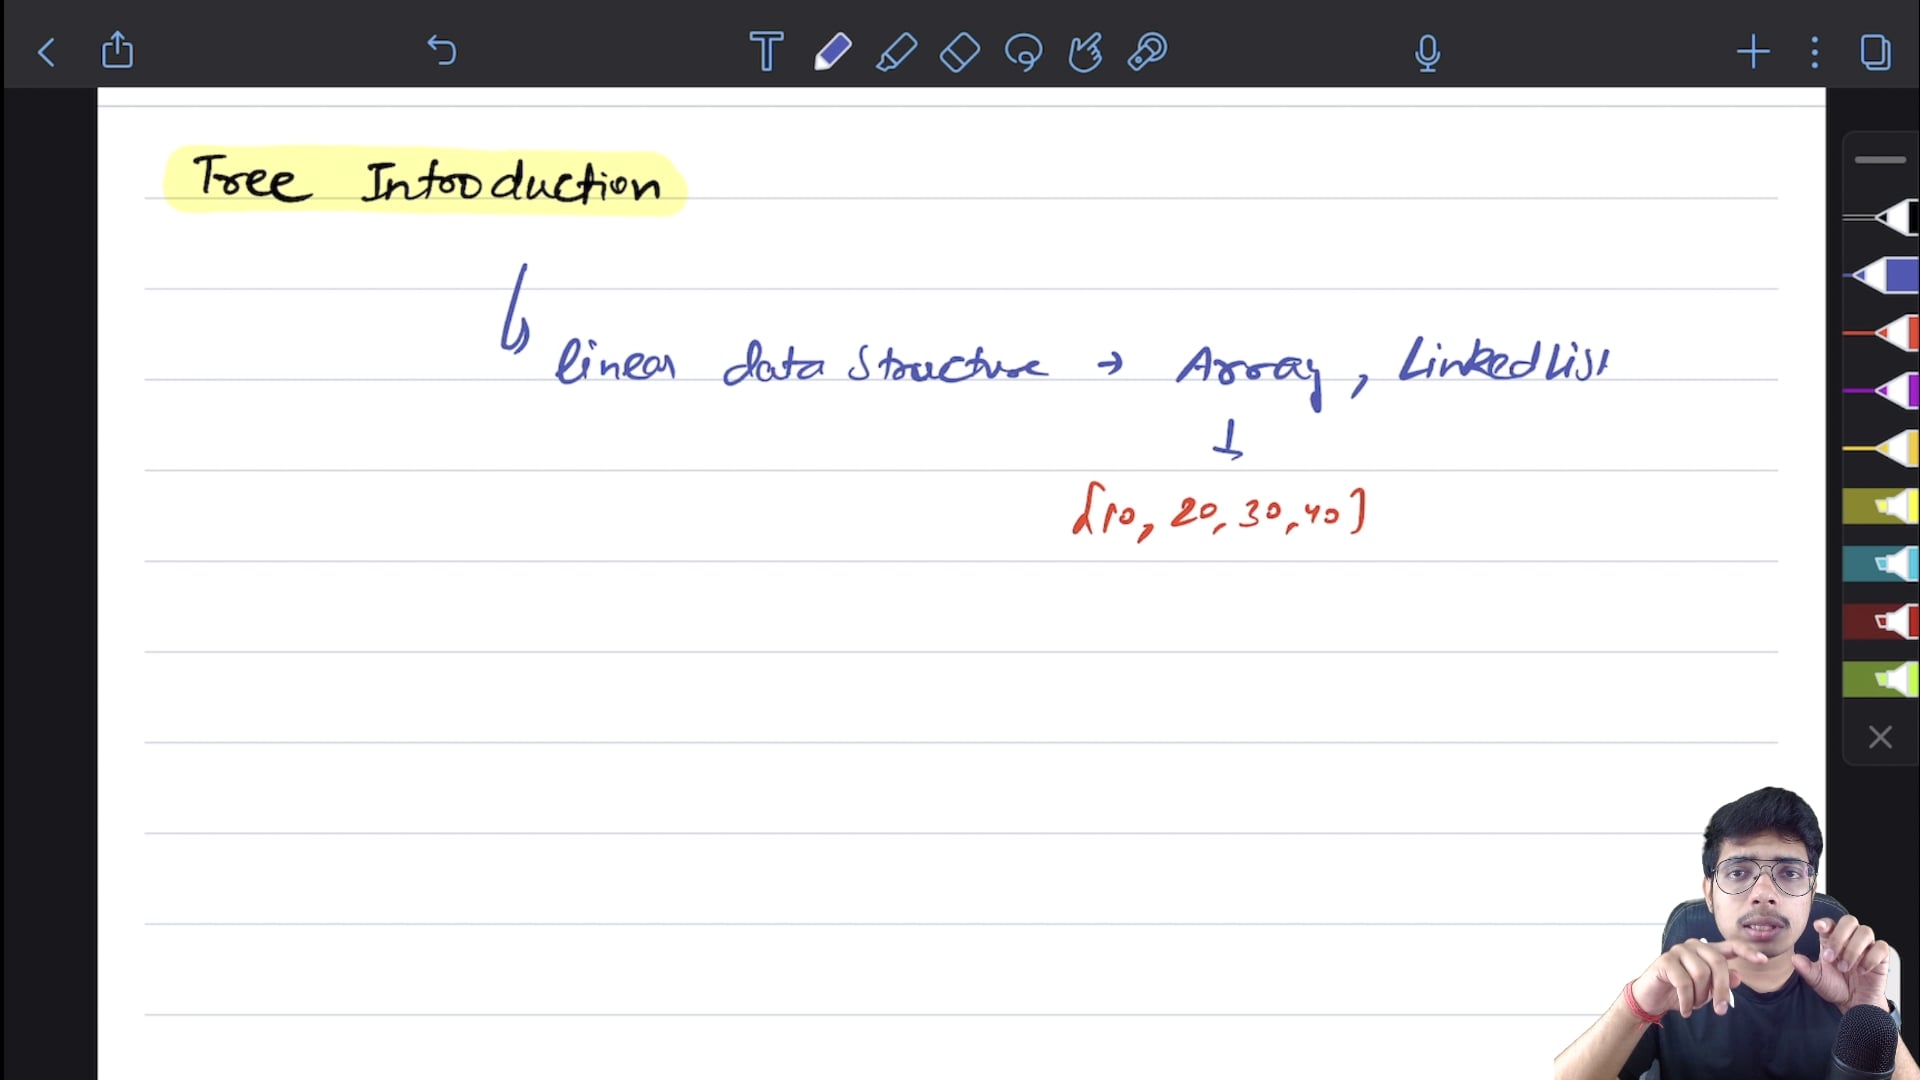 Tree Introduction
linear data structure → Array, LinkedList
[10, 20, 30, 40]